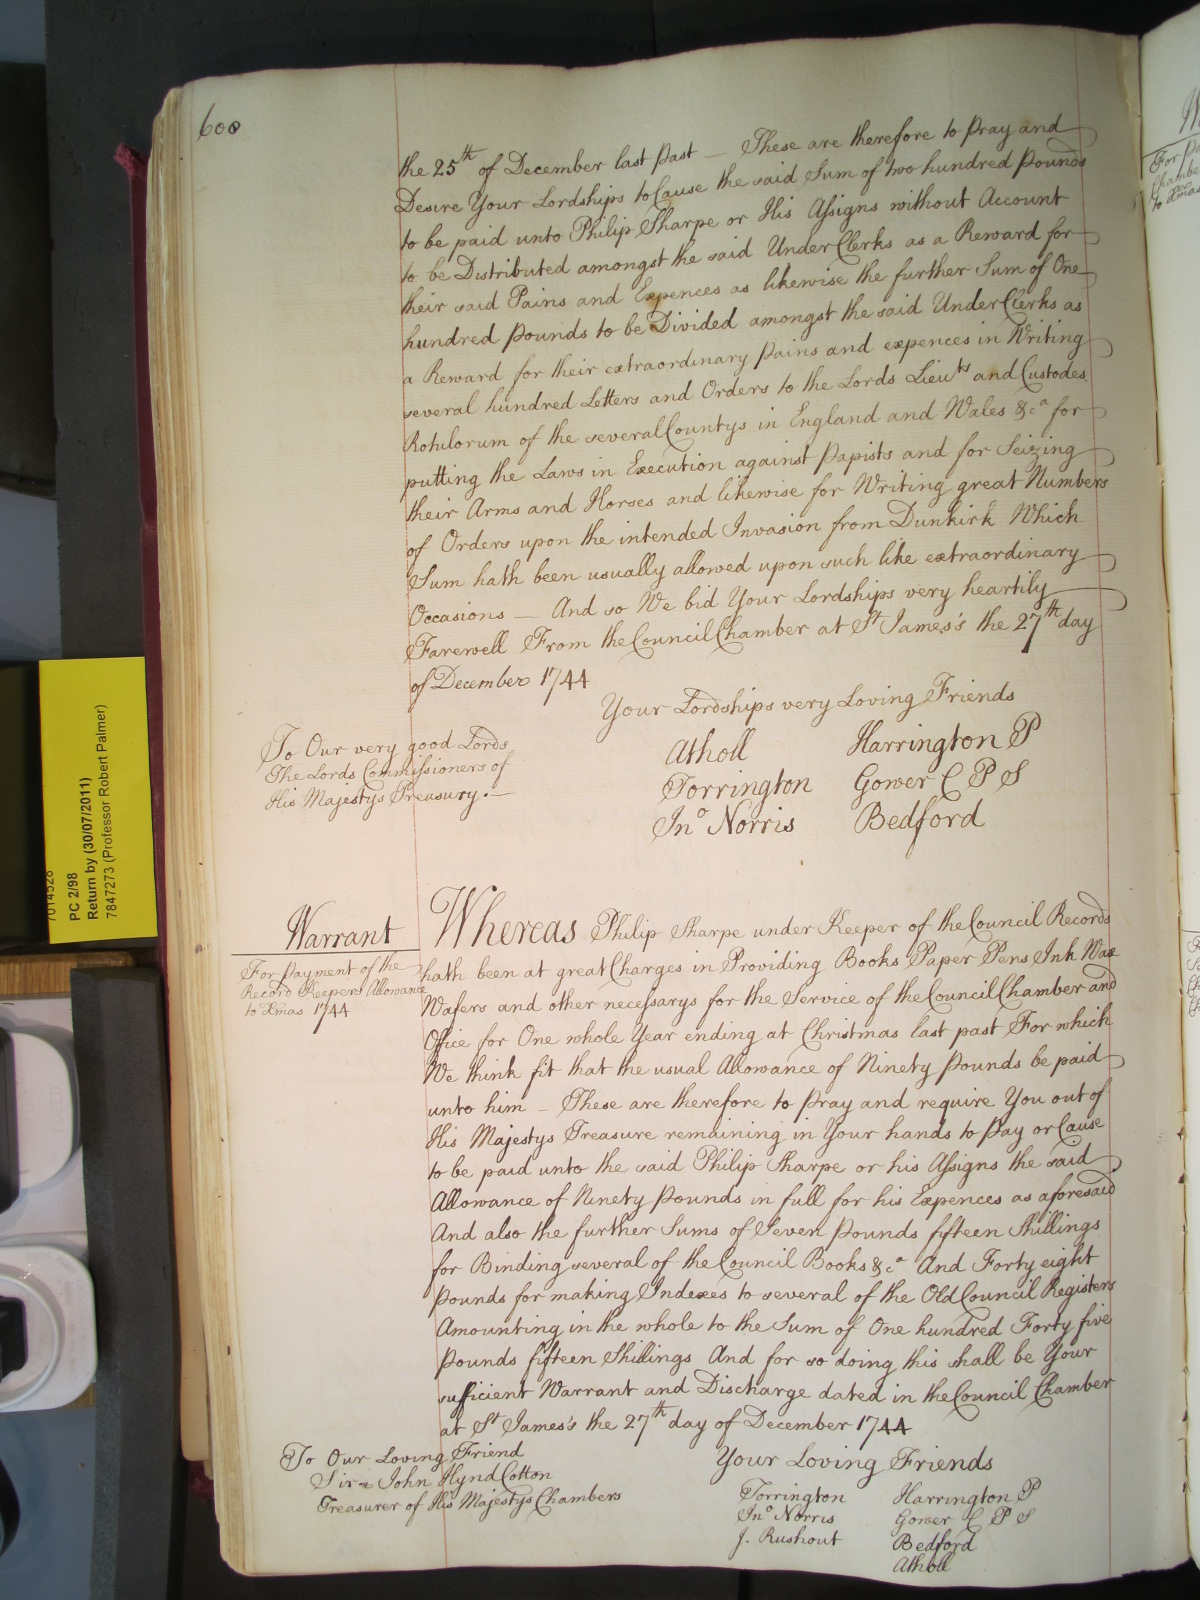 600
the 25th of December last Past — These are therefore to Pray and
Desire Your Lordships to Cause the said Sum of two hundred Pounds
to be paid unto Philip Sharpe or His Assigns without Account
to be Distributed amongst the said Under Clerks as a Reward for
their said Pains and Expences as likewise the further Sum of One
hundred Pounds to be Divided amongst the said Under Clerks as
a Reward for their extraordinary Pains and expences in Writing
several hundred Letters and Orders to the Lords Lieuts and Custodes
Rotulorum of the several Countys in England and Wales &ca for
putting the Laws in Execution against Papists and for Seizing
their Arms and Horses and likewise for Writing great Numbers
of Orders upon the intended Invasion from Dunkirk Which
Sum hath been usually allowed upon such like extraordinary
Occasions — And so We bid Your Lordships very heartily
Farewell From the Council Chamber at St James's the 27th day
of December 1744
Your Lordships very Loving Friends
To Our very good Lords
The Lords Commissioners of
His Majestys Treasury. —
Atholl Harrington P
Torrington Gower C P S
Jno Norris Bedford
Warrant
For Payment of the
Record Keepers Allowance
to Xmas 1744
Whereas Philip Sharpe under Keeper of the Council Records
hath been at great Charges in Providing Books Paper Pens Ink Wax
Wafers and other necessarys for the Service of the Council Chamber and
Office for One whole Year ending at Christmas last past For which
We think fit that the usual Allowance of Ninety Pounds be paid
unto him — These are therefore to Pray and require You out of
His Majestys Treasure remaining in Your hands to Pay or Cause
to be paid unto the said Philip Sharpe or his Assigns the said
Allowance of Ninety Pounds in full for his Expences as aforesaid
And also the further Sums of Seven Pounds fifteen Shillings
for Binding several of the Council Books &ca And Forty eight
Pounds for making Indexes to several of the Old Council Registers
Amounting in the whole to the Sum of One hundred Forty five
Pounds fifteen Shillings And for so doing this shall be Your
sufficient Warrant and Discharge dated in the Council Chamber
at St James's the 27th day of December 1744
To Our Loving Friend
Sir John Hynd Cotton
Treasurer of His Majestys Chambers
Your Loving Friends
Torrington Harrington P
Jno Norris Gower C P S
J. Rushout Bedford
Atholl
7014526
PC 2/98
Return by (30/07/2011)
7847273 (Professor Robert Palmer)